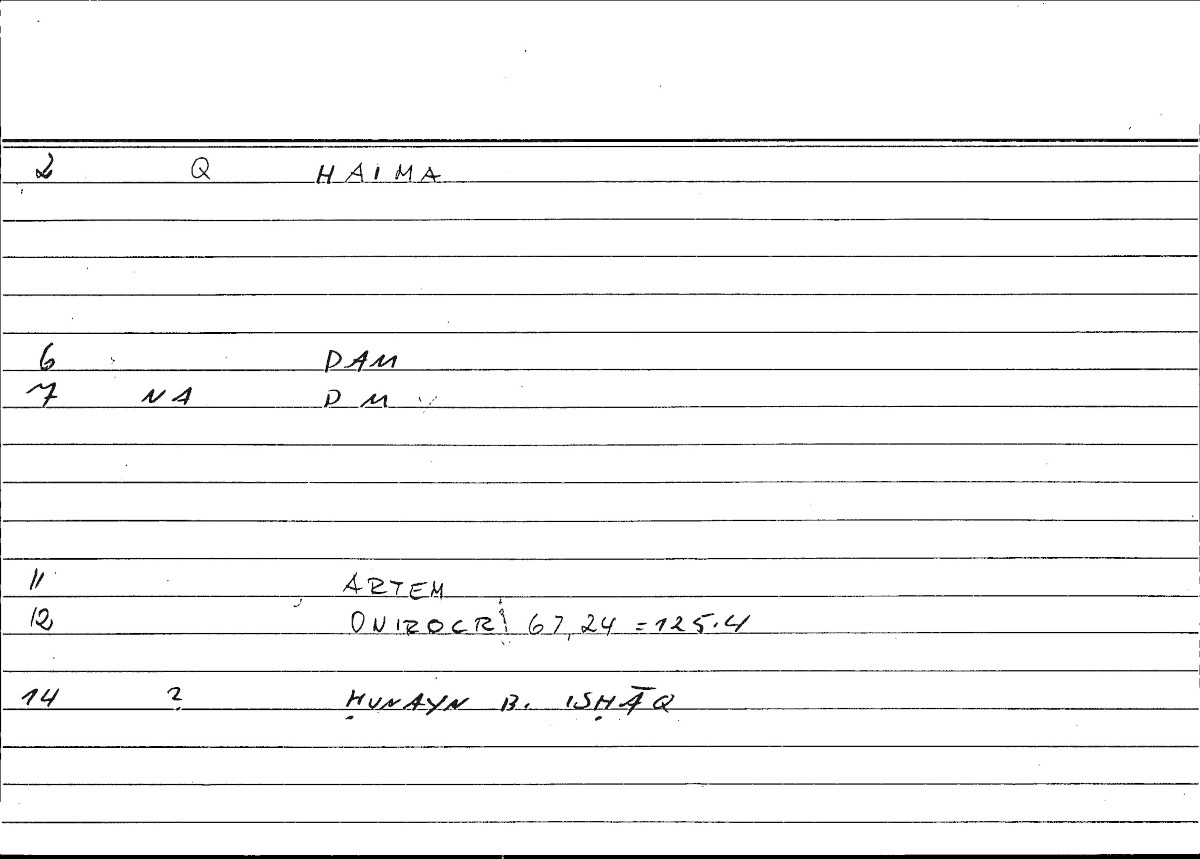 2 Q HAIMA
6 DAM
7 NA DM
11 ARTEM
12 ONIROCR 67,24 = 125.4
14 ? ḤUNAYN B. ISḤĀQ